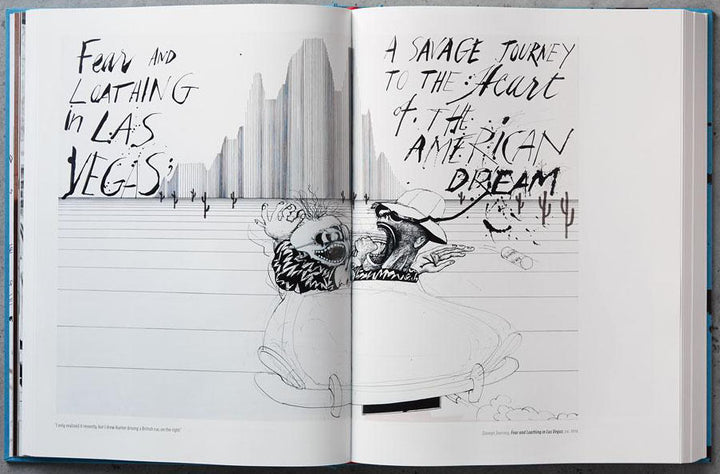 Fear AND
LOATHING
in LAS
VEGAS;
A SAVAGE JOURNEY
TO THE Heart
of THE
AMERICAN
DREAM
"I only realised it recently, but I drew Hunter driving a British car, on the right"
Savage Journey, Fear and Loathing in Las Vegas,